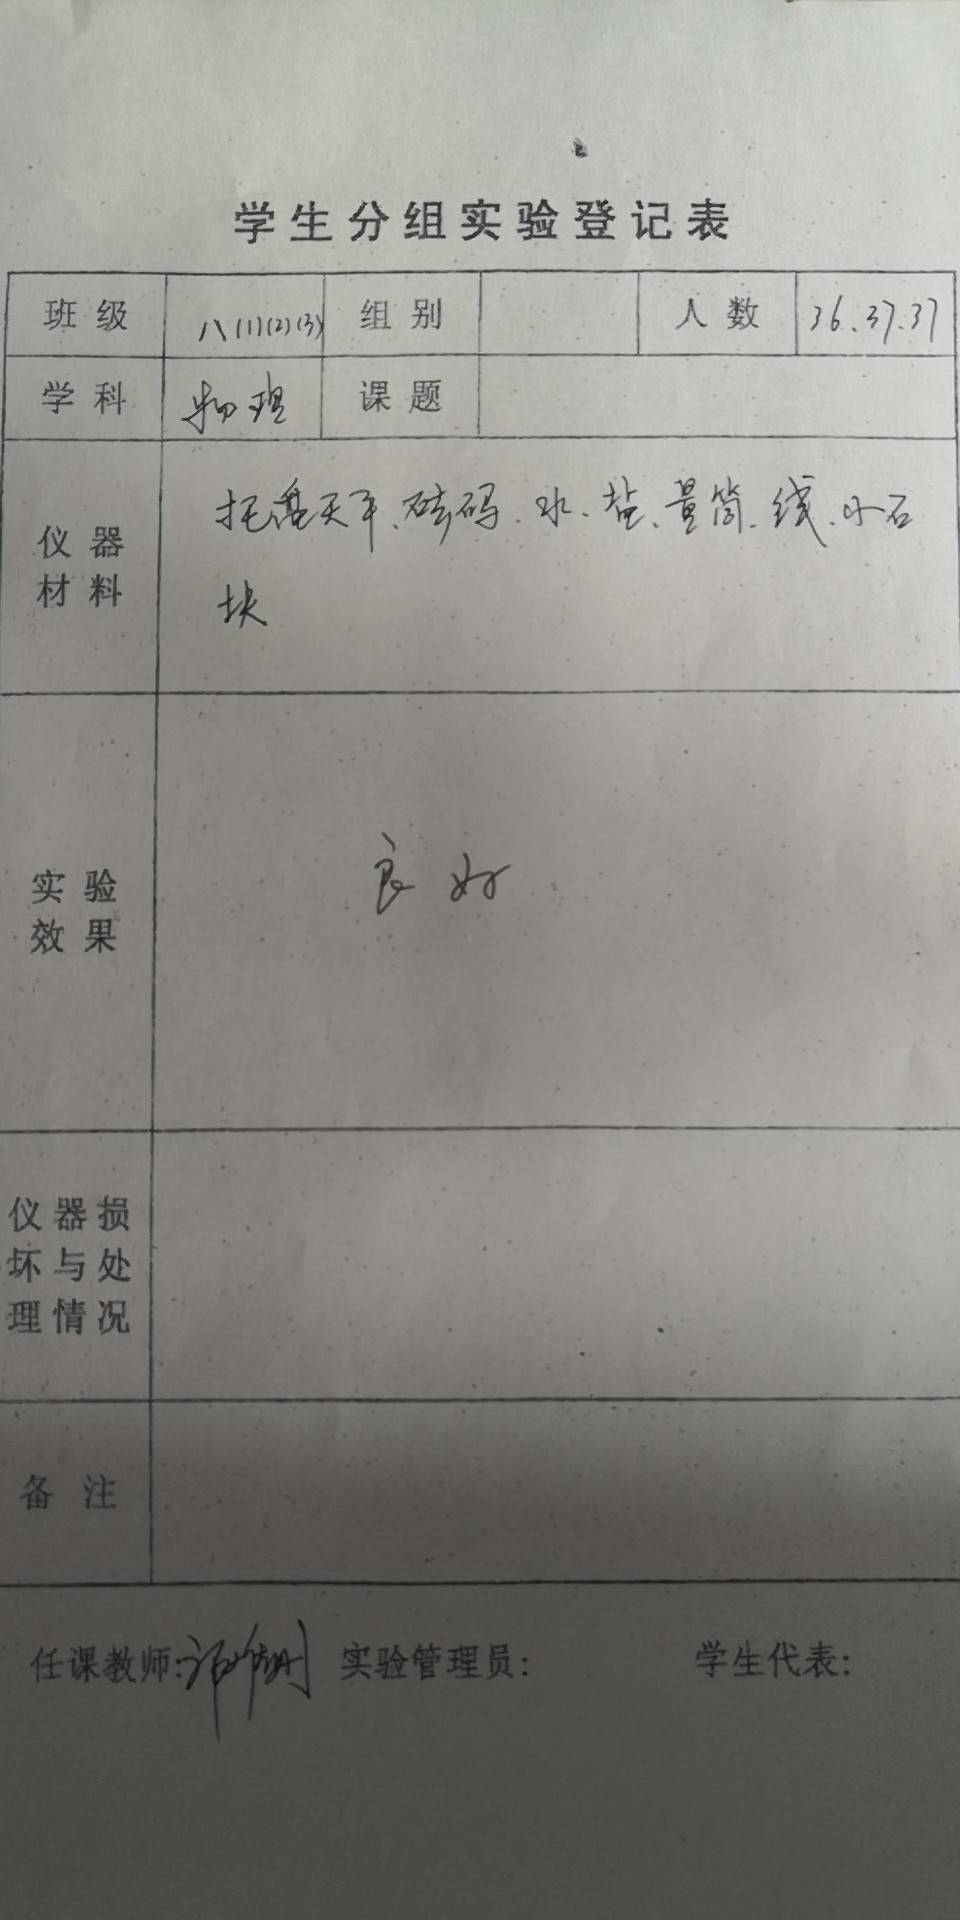 学生分组实验登记表
班级 八(1)(2)(3) 组别 人数 36、37、37
学科 物理 课题
仪器材料 托盘天平、砝码、水、盐、量筒、线、小石
块
实验效果 良好
仪器损坏与处理情况
备注
任课教师: 实验管理员: 学生代表: